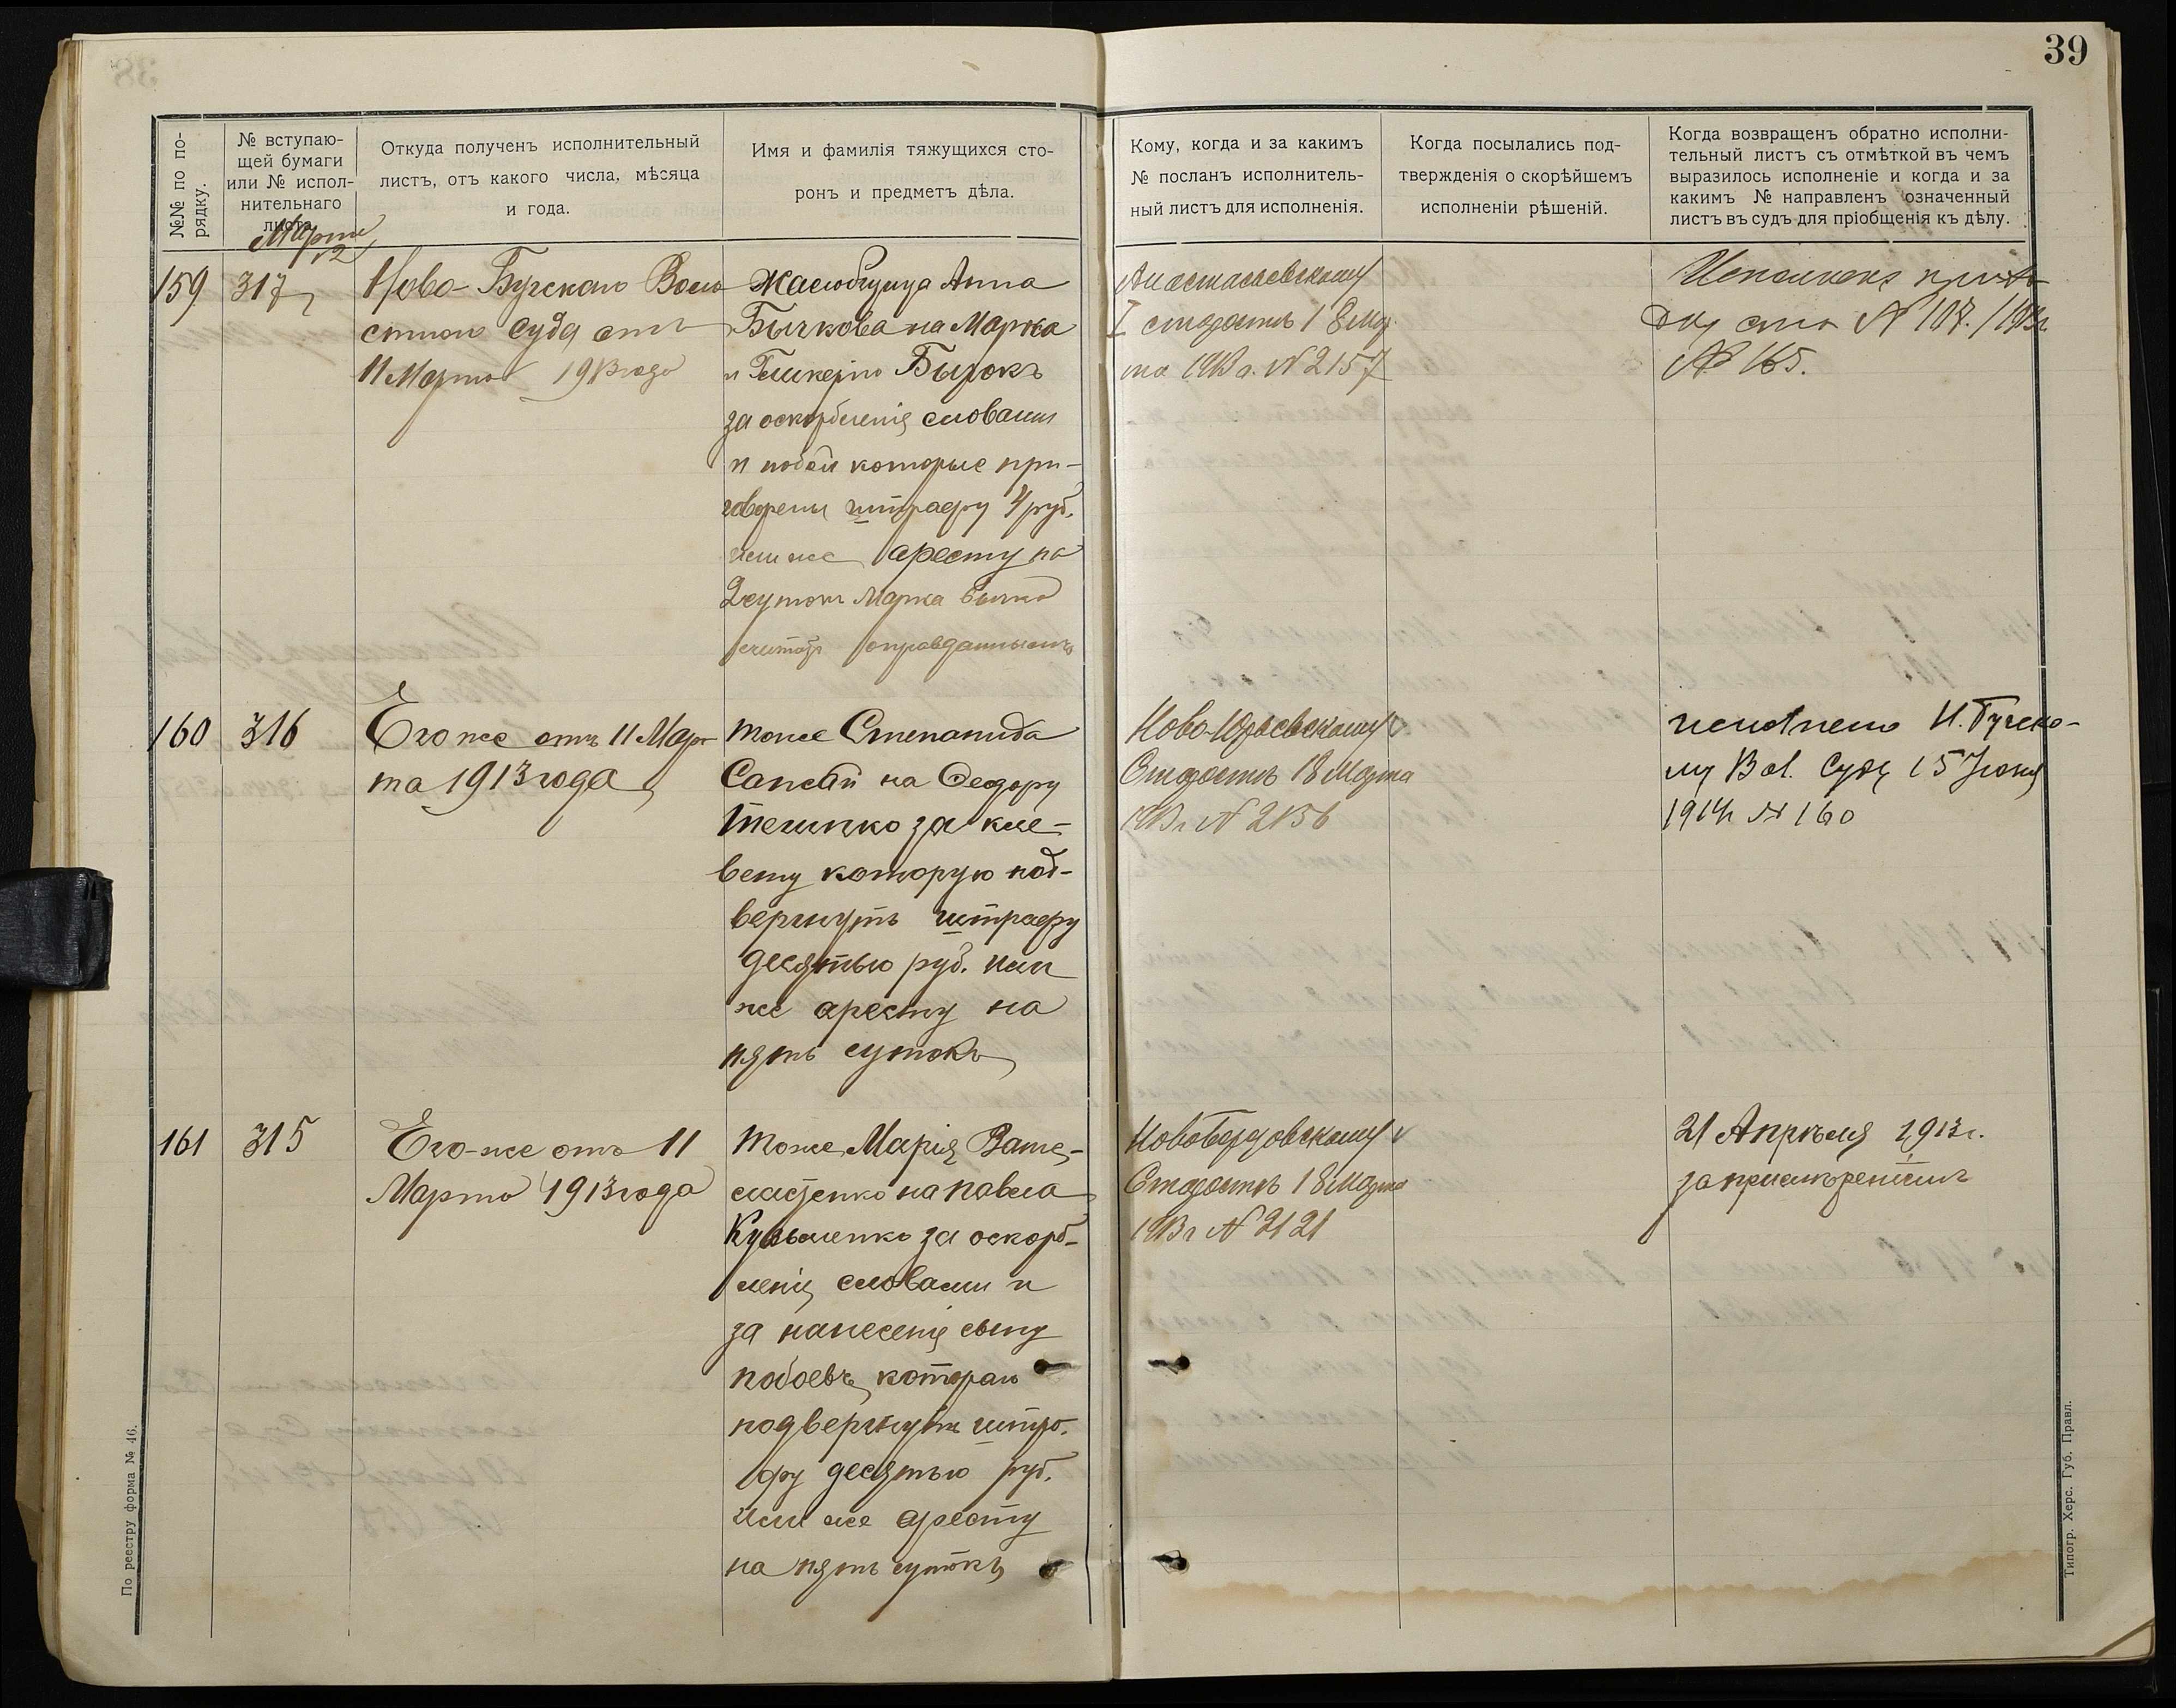 39
№№ по по-
рядку.
№ вступаю-
щей бумаги
или № испол-
нительнаго
листа.
Откуда полученъ исполнительный
листъ, отъ какого числа, мѣсяца
и года.
Имя и фамилія тяжущихся сто-
ронъ и предметъ дѣла.
Кому, когда и за какимъ
№ посланъ исполнитель-
ный листъ для исполненія.
Когда посылались под-
твержденія о скорѣйшемъ
исполненіи рѣшеній.
Когда возвращенъ обратно исполни-
тельный листъ съ отмѣткой въ чемъ
выразилось исполненіе и когда и за
какимъ № направленъ означенный
листъ въ судъ для пріобщенія къ дѣлу.
Марта
12
159
317
Ново-Бугскаго Воло
стного Суда отъ
11 Марта 1913 года
Жалобщица Анна
Бычкова на Марка
и Бычокъ
за оскорбленія словами
и побои которые при-
говорены штрафу 4 руб.
или же аресту на
2 сутокъ Марка Бычка
считать оправданнымъ
I старостѣ 18 Мар
та 1913 г. № 2157
№ 107. / 1913 г.
№ 165.
160
316
Его же отъ 11 Мар
та 1913 года
тоже Степанида
Сапсай на Феодору
за кле-
вету которую под-
вергнуть штрафу
десятью руб. или
же аресту на
пять сутокъ
Ново-Юрьевскому
Старостѣ 18 Марта
1913 г № 2156
исполнено Н. Бугско-
му Вол. Суду 15 Іюня
1914 г № 160
161
315
Его-же отъ 11
Марта 1913 года
тоже Марія
на Павла
Кузьменко за оскорб-
леніе словами и
за нанесеніе сыну
побоевъ, котораго
подвергнуть штра-
фу десятью руб.
или же аресту
на пять сутокъ
Старостѣ 18 Марта
1913 г № 2121
21 Апрѣля 1913 г.
за примиреніемъ
По реестру форма № 46.
Типогр. Херс. Губ. Правл.